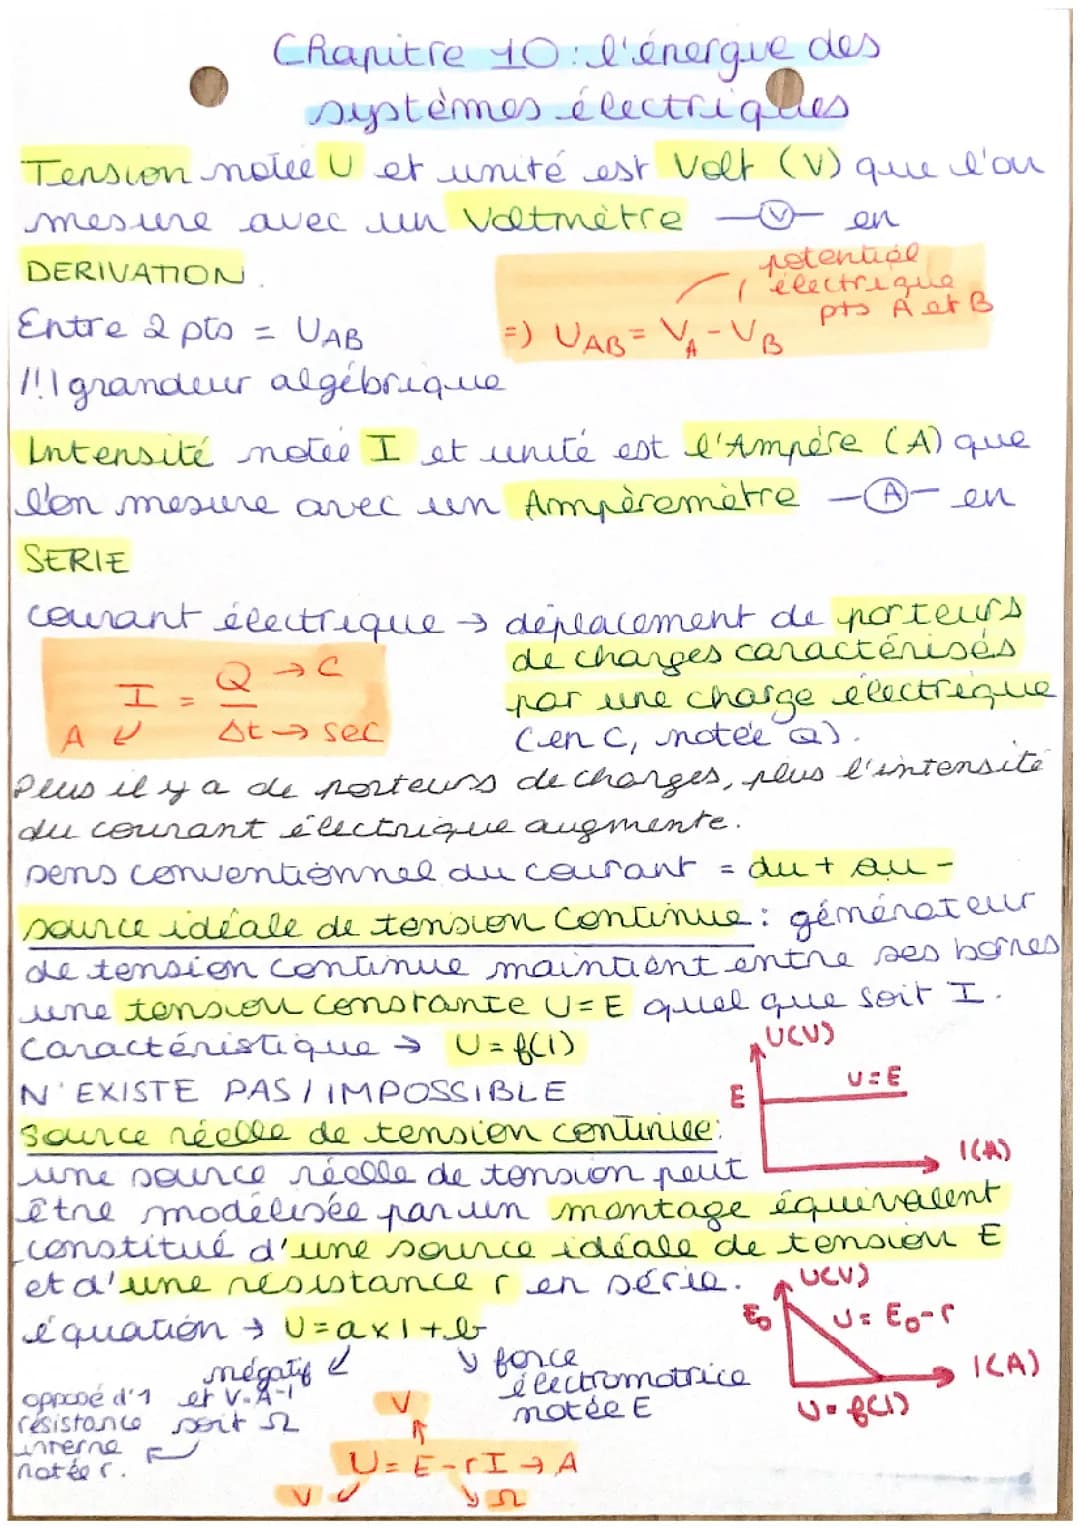 Chapitre 10: l'énergie des
systèmes électriques
Tension notée U et unité est Volt (V) que l'on
mesure avec un Voltmètre —(V)— en
DERIVATION.
potentiel
électrique
pts A et B
Entre 2 pts = UAB
=> UAB = VA - VB
/!\ grandeur algébrique
Intensité notée I et unité est l'Ampère (A) que
l'on mesure avec un Ampèremètre —(A)— en
SERIE
courant électrique → déplacement de porteurs
de charges caractérisés
par une charge électrique
(en C, notée Q).
I = Q → C
A ↙ Δt → sec
Plus il y a de porteurs de charges, plus l'intensité
du courant électrique augmente.
sens conventionnel du courant = du + au -
source idéale de tension continue : générateur
de tension continue maintient entre ses bornes
une tension constante U = E quel que soit I.
Caractéristique → U = f(I)
N'EXISTE PAS / IMPOSSIBLE
U(V)
E
U = E
I(A)
Source réelle de tension continue:
une source réelle de tension peut
être modélisée par un montage équivalent
constitué d'une source idéale de tension E
et d'une résistance r en série.
U(V)
E0
U = E0 - r
I(A)
U = f(I)
équation → U = a x I + b
négatif ↙
et V.A-1
soit Ω
opposé d'1
résistance
interne
notée r.
↘ force
électromotrice
notée E
V
↑
U = E - rI → A
V ↙ ↘ Ω